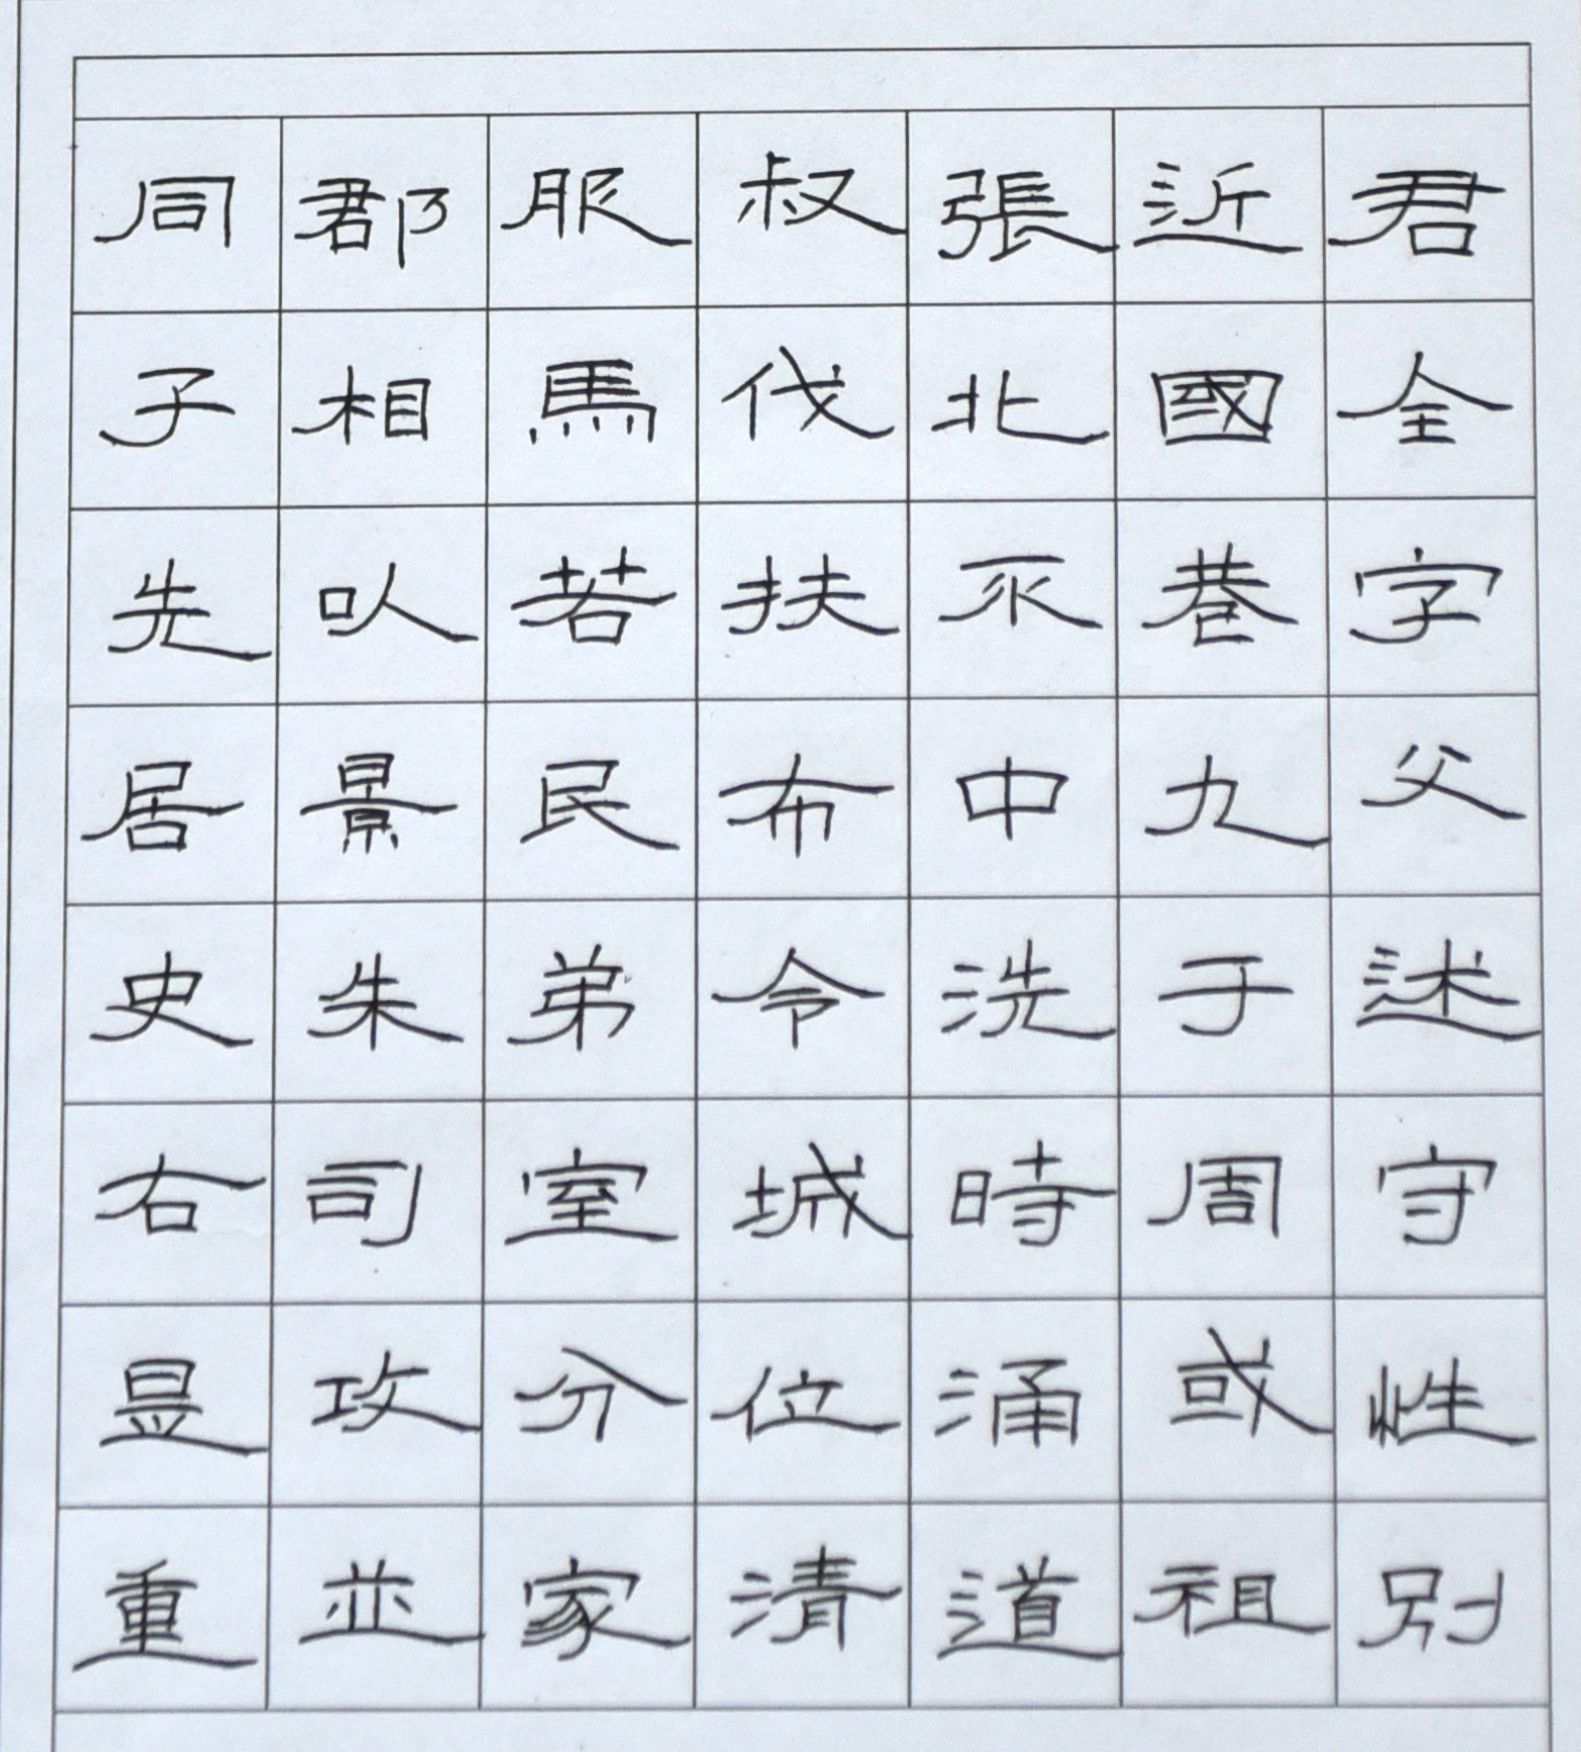 君全字父述守性別
近國巷九于周或祖
張北不中洗時涌道
叔伐扶布令城位清
服馬若民弟室分家
郡相㕥景朱司攻並
同子先居史右昱重